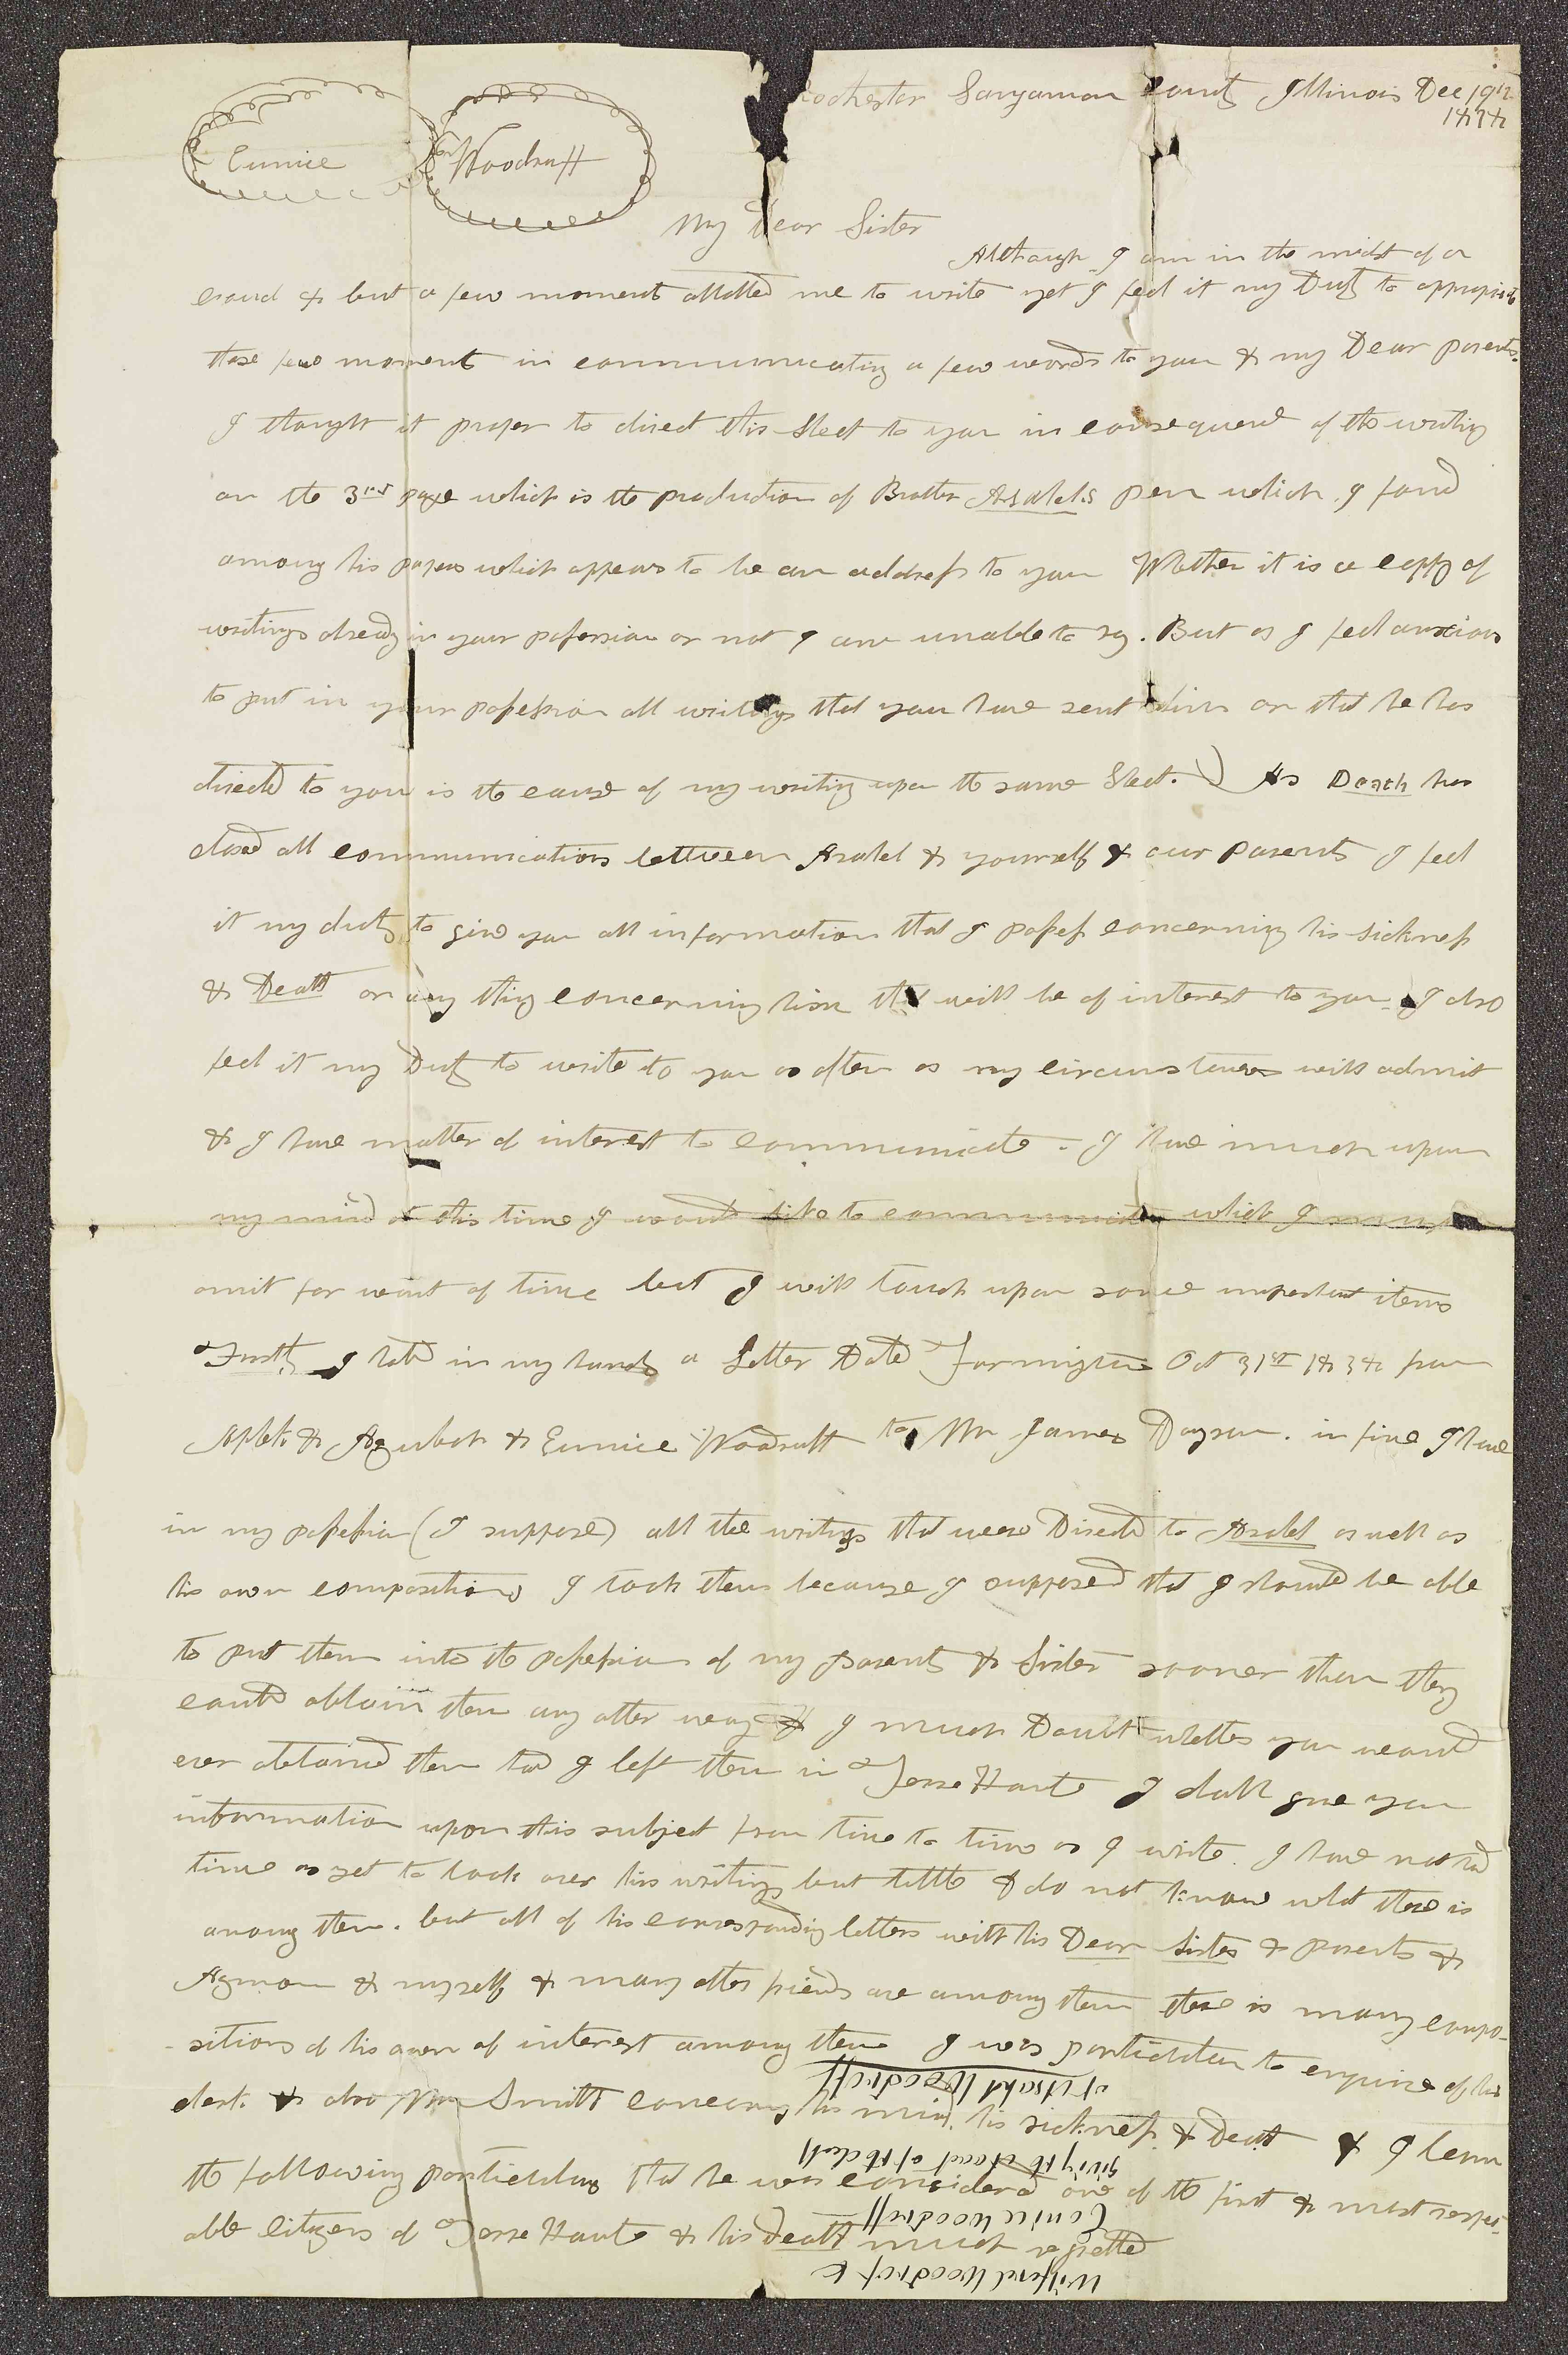 Rochester Sangamon County Illinois Dec 19th
1838
Eunice Woodruff
My Dear Sister
Although I am in the midst of a
croud & but a few moments allotted me to write yet I feel it my Duty to appropriate
those few moments in communicating a few words to you & my Dear parents.
I thought it proper to direct this Sheet to you in consequence of the writing
on the 3rd page which is the production of Brother Asahels pen which I found
among his papers which appears to be an address to you Whether it is a copy of
writings already in your possession or not I am unable to say. But as I feel anxious
to put in your possession all writings that you have sent him or that he has
directed to you is the cause of my writing upon the same Sheet.) As Death has
closed all communications between Asahel & yourself & our Parents I feel
it my duty to give you all information that I possess concerning his sickness
& Death or any thing concerning him that will be of interest to you. I also
feel it my Duty to write to you as often as my circumstances will admit
& I have matter of interest to communicate - I have much upon
my mind at this time I would like to communicate which I must
omit for want of time but I will touch upon some important items
First I hold in my hands a Letter Dated Farmington Oct 31st 1838 from
Aphek & Azubah & Eunice Woodruff to Mr James Dayson. in fine I have
in my possession (I suppose) all the writings that were Directed to Asahel as well as
his own compositions I took them because I supposed that I should be able
to put them into the possession of my Parents & Sister sooner than they
could obtain them any other way & I much Doubt whether you would
ever obtained them had I left them in Terre Haute I shall give you
information upon this subject from time to time as I write. I have not had
time as yet to look over his writings but little & do not know what there is
among them. but all of his corresponding letters with his Dear Sister & parents &
Azmon & myself & many other friends are among them there is many compo-
sitions of his own of interest among them I was particular to enquire of his
clerk & also Mr Smith concerning his mind, his sickness, & Death & I learn
the following particulars that he was considered one of the first & most respect-
able citizens of Terre Haute & his death much regretted
Wilford Woodruff
Eunice Woodruff
giving the account of the death
of Asahel Woodruff